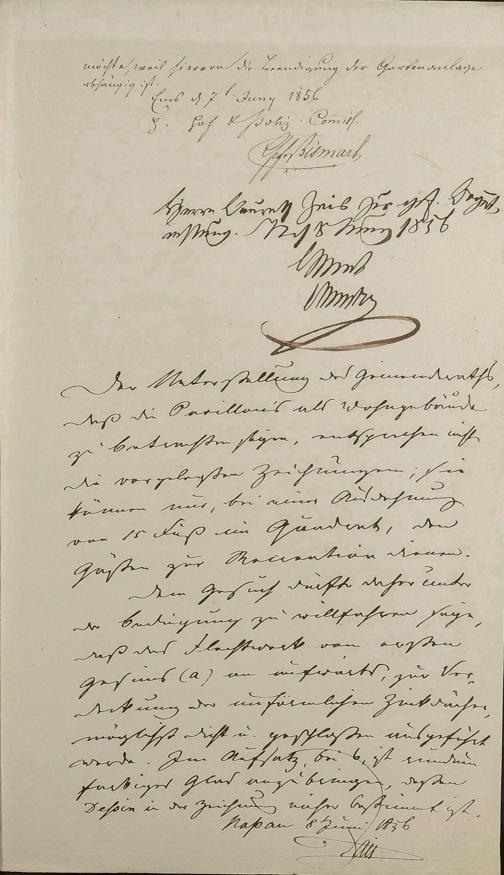 möchte, weil hiervon die Beendigung der Gartenanlage
abhängig ist.
Ems d. 7t Juny 1856
H. Hof & Poliz. Commiss.
Bismark
Herrn Baurath Zais zur gef. Begut-
achtung. N. 8 Juny 1856
Der Unterstellung des Gemeinderaths,
daß die Pavillons als Wohngebäude
zu betrachten seyen, entsprechen nicht
die vorgelegten Zeichnungen; sie
können nur, bei einer Ausdehnung
von 15 Fuß im Quadrat, den
Gästen zur Recreation dienen.
Dem Gesuch dürfte daher unter
der Bedingung zu willfahren seyn,
daß das Flechtwerk vom ersten
Gesims (a) an aufwärts, zur Ver-
deckung der unförmlichen Zinkdächer,
möglichst dicht u. geschlossen ausgeführt
werde. Im Aufsatz, bei b, ist rundum
farbiges Glas anzubringen, dessen
Dessin in der Zeichnung näher bestimmt ist.
Nassau 8 Juni 1856
Zais